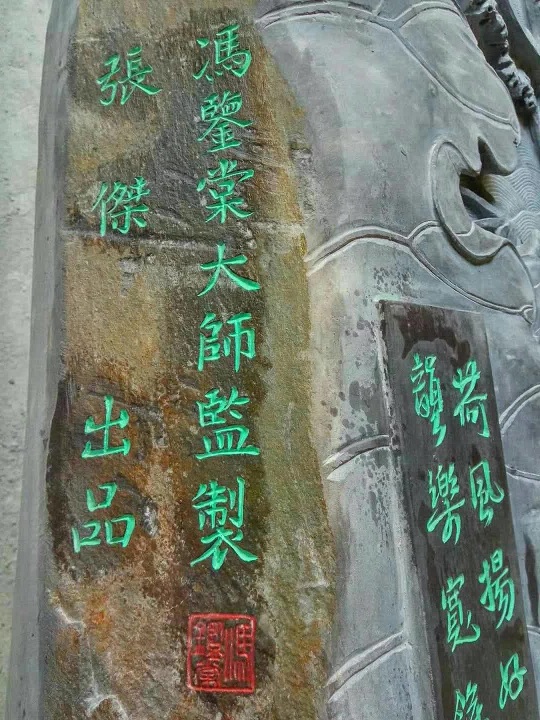 荷風揚好
樂寬
馮鑒棠大師監製
張傑出品